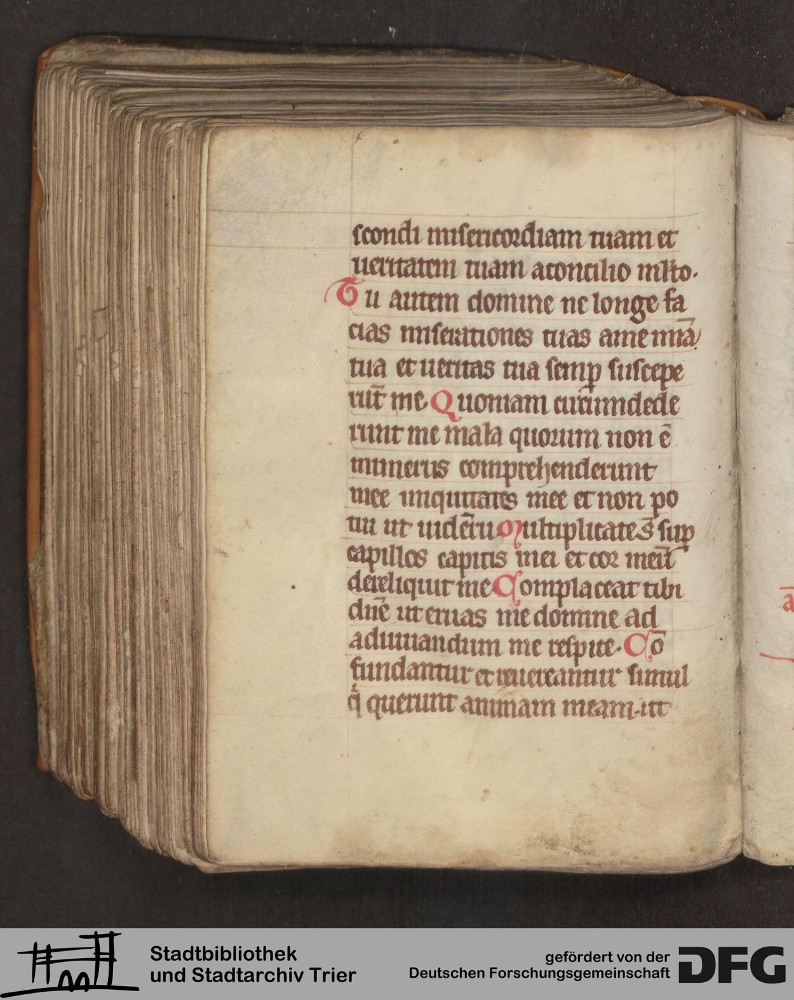 scondi misericordiam tuam et
ueritatem tuam a concilio mlto.
Tu autem domine ne longe fa
cias miserationes tuas a me mīa
tua et ueritas tua semp suscepe
rūt me. Quoniam circumdede
runt me mala quorum non ē
numerus comprehenderunt
mee iniquitates mee et non po
tui ut uiderē Multiplicate s̄ sup
capillos capitis mei et cor meū
dereliquit me Complaceat tibi
dn̄e ut eruas me domine ad
adiuuandum me respice. Cō
fundantur et reuereantur simul
q̄ querunt animam meam. ut
ā
Stadtbibliothek
und Stadtarchiv Trier
gefördert von der
Deutschen Forschungsgemeinschaft
DFG